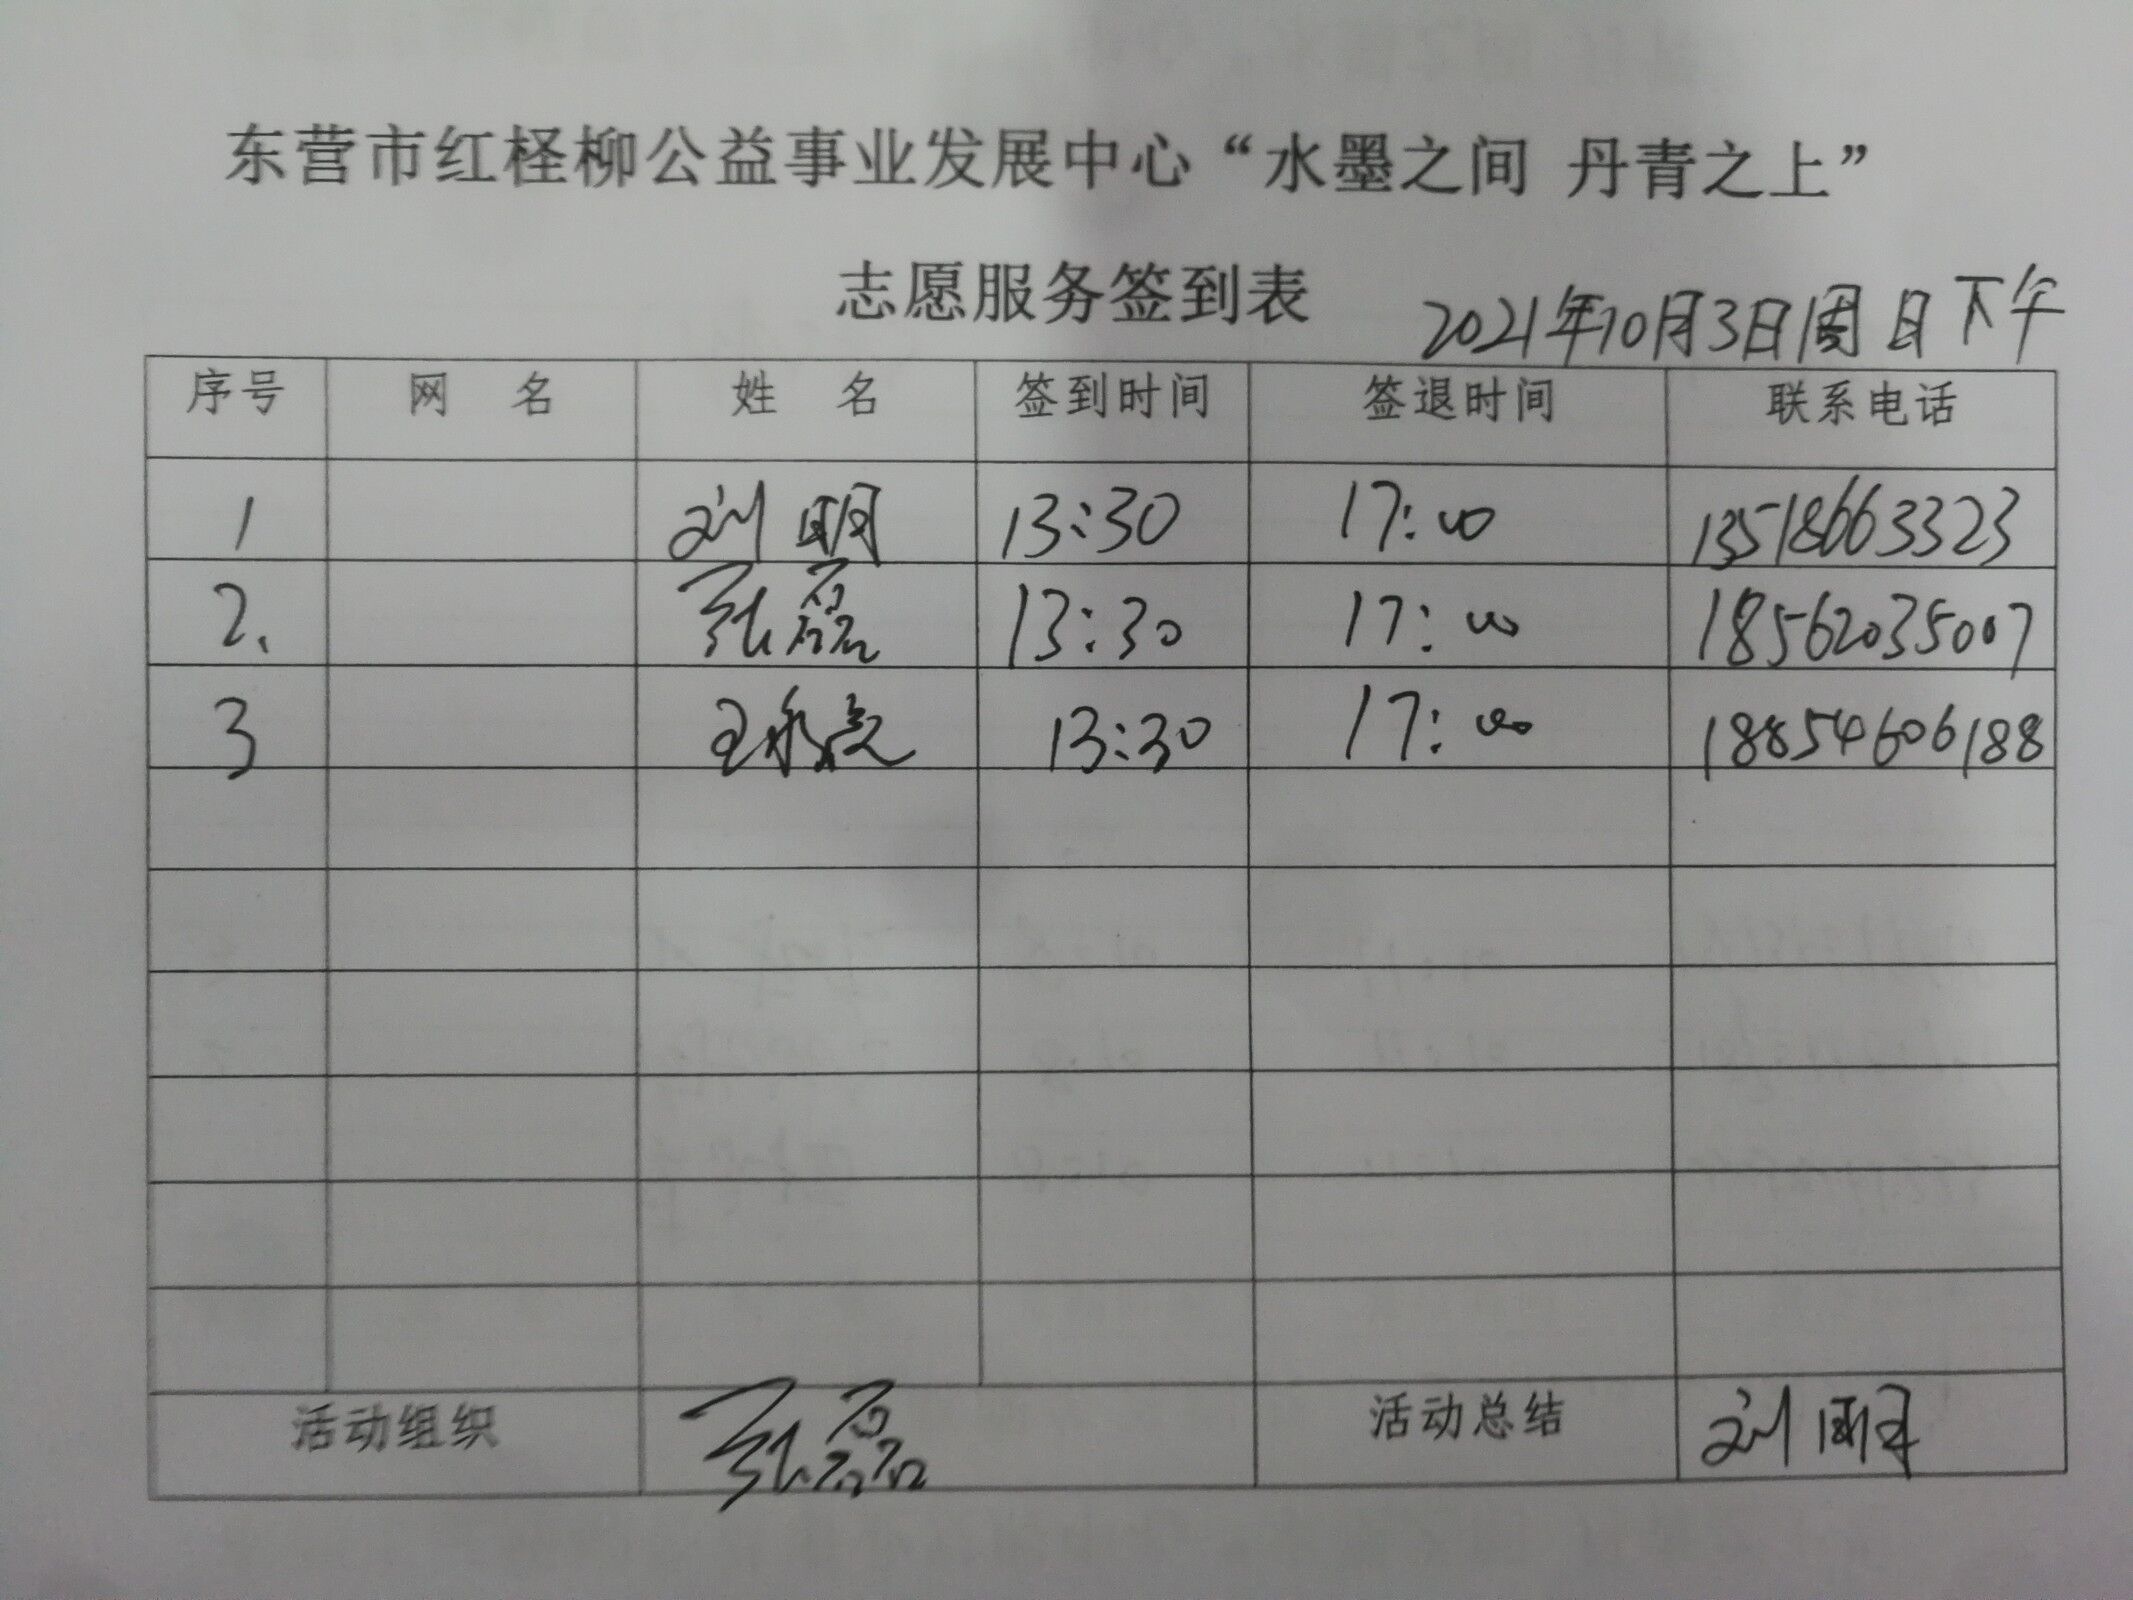 东营市红柽柳公益事业发展中心“水墨之间 丹青之上”
志愿服务签到表 2021年10月3日周日下午
序号 网名 姓名 签到时间 签退时间 联系电话
1 刘明 13:30 17:00 13518663323
2、 张磊 13:30 17:00 18562035007
3 13:30 17:00 18854606188
活动组织 张磊 活动总结 刘明